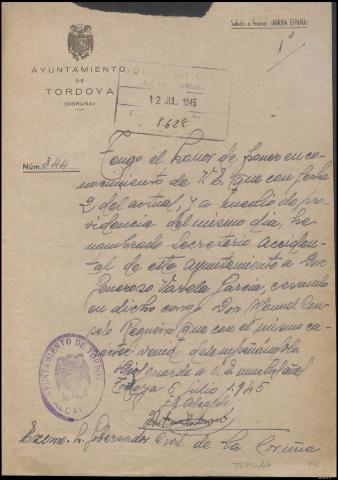 Saludo a Franco: ¡ARRIBA ESPAÑA!
1º
AYUNTAMIENTO
DE
TORDOYA
(CORUÑA)
12 JUL. 1945
8.628
Núm. 344
Tengo el honor de poner en co-
nocimiento de V.E. que con fecha
2 del actual, y a medio de pro-
videncia del mismo dia, he
nombrado Secretario acciden-
tal de este Ayuntamiento a Don
Generoso Varela Garcia, cesando
en dicho cargo Don Manuel
Regueiro que con el mismo ca-
racter venia desempeñandola
Dios guarde a V.E. muchos años
Tordoya 6 julio 1945
El Alcalde
AYUNTAMIENTO DE TORDOYA
ALCALDIA
Excmo. Sr. Gobernador Civil de La Coruña